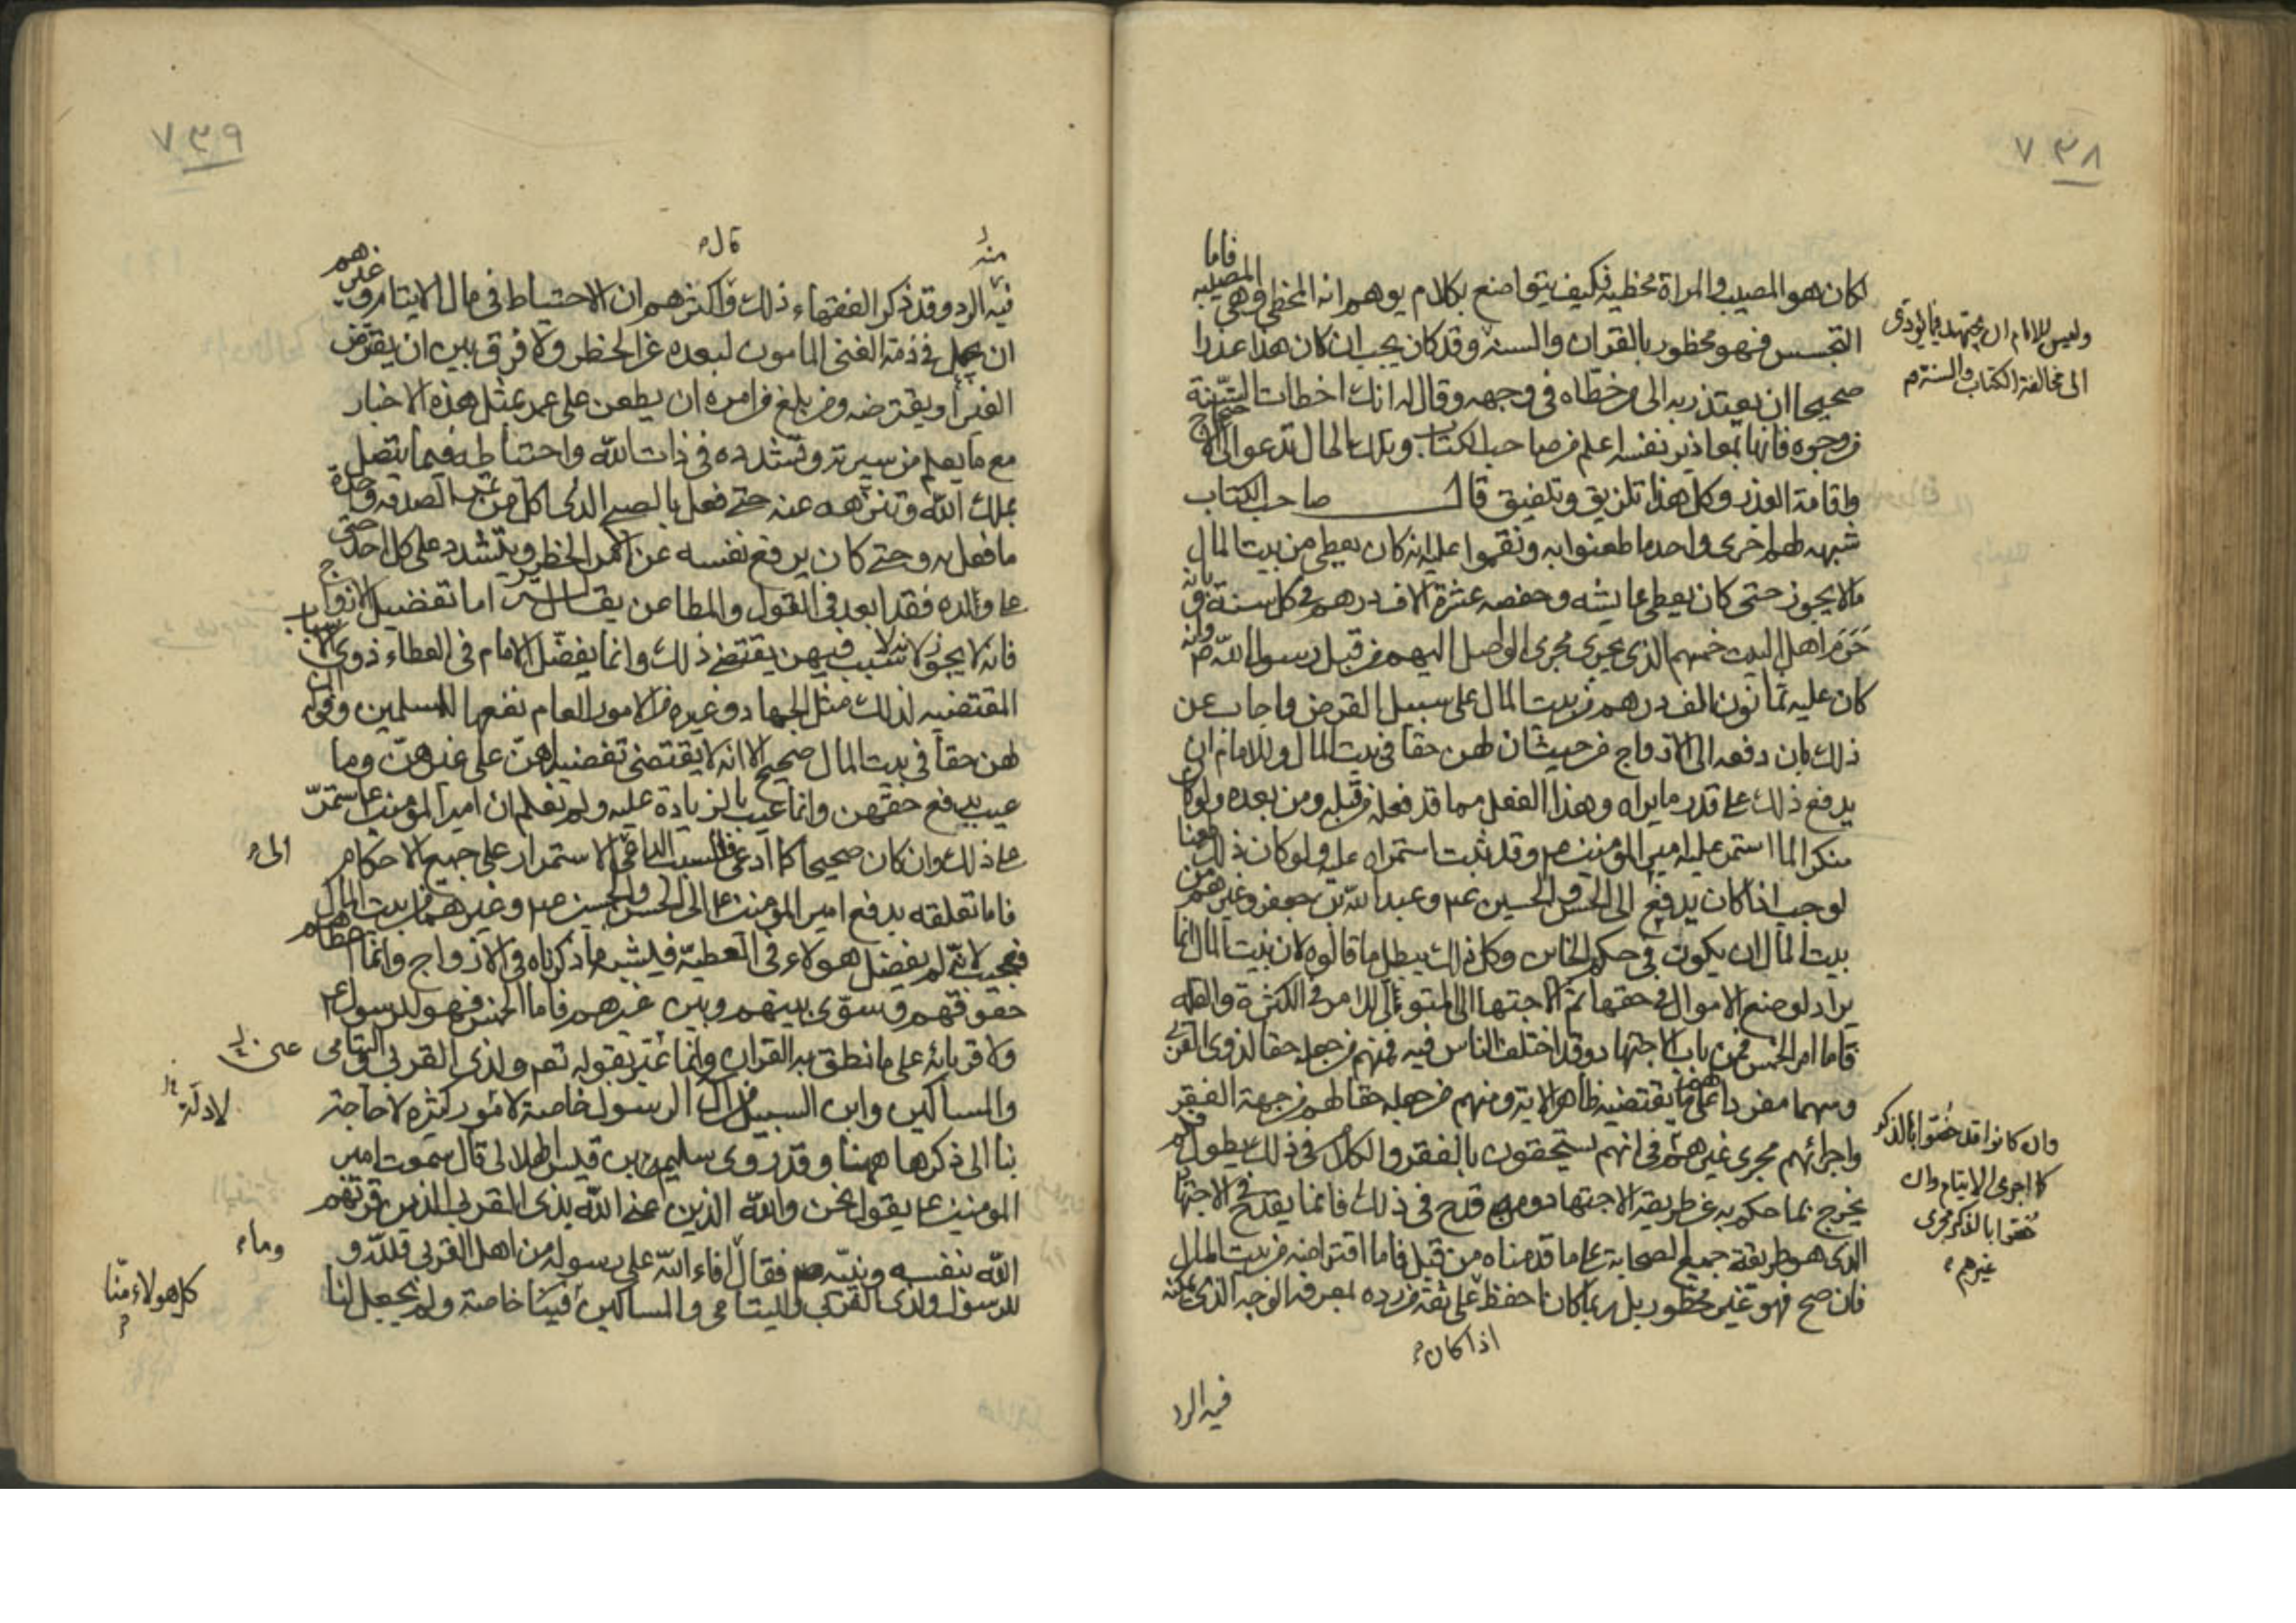 ٧٣٨
لكان هو المصيب والمراة مخطيه فكيف يتواضع بكلام يوهم انه المخطي وهي المصيبه فاما
التجسس فهو محظور بالقران والسنه وقد كان يجب ان كان هذا عذرا
وليس للامام ان يجتهد فيما يؤدى
الى مخالفة الكتاب والسنة م
صحيحا ان يعتذر به الى من خطاه في وجهه وقال له انك اخطات السنة
من وجوه فانه بمعاذير نفسه اعلم من صاحب الكتاب وتلك الحال تدعو الى الاحتجاج
واقامة العذر وكل هذا تلزيق وتلفيق قال صاحب الكتاب
شبهه لهم اخرى واحد ما طعنوا به ونقموا عليه انه كان يعطي من بيت المال
مالا يجوز حتى كان يعطي عايشه وحفصه عشرة الاف درهم في كل سنة وبانه
حرم اهل البيت خمسهم الذي يجري مجرى الواصل اليهم من قبل رسول الله ص وانه
كان عليه ثمانون الف درهم من بيت المال على سبيل القرض واجاب عن
ذلك بان دفعه الى الازواج من حيث ان لهن حقا في بيت المال وللامام ان
يدفع ذلك على قدر ما يراه وهذا الفعل مما قد فعله من قبله ومن بعده ولو كان
منكرا لما استمر عليه امير المؤمنين ع وقد ثبت استمراره عليه ولو كان ذلك طعنا
لوجب اذا كان يدفع الى الحسن والحسين ع وعبد الله بن جعفر وغيرهم من
بيت المال ان يكون في حكم الخاين وكل ذلك يبطل ما قالوه لان بيت المال انما
يراد لوضع الاموال في حقها ثم الاجتهاد الى المتولي للامر في الكثرة والقله
فاما امر الخمس فمن باب الاجتهاد وقد اختلف الناس فيه فمنهم من جعله حقا لذوى القربى
وسهما مفردا لهم على ما يقتضيه ظاهر الاية ومنهم من جعله حقا لهم من جهة الفقر
واجرائهم مجرى غيرهم في انهم يستحقون بالفقر والكلام في ذلك يطول فلم
وان كانوا قد خصوا بالذكر
كما اجرى الايتام وان
خصوا بالذكر مجرى
غيرهم
يخرج بما حكم به عن طريقة الاجتهاد ومن قدح في ذلك فانما يقدح في الاجتهاد
الذى هو طريقة جميع الصحابة على ما قدمناه من قبل فاما اقتراضه من بيت المال
فان صح فهو غير محظور بل ربما كان احفظ على ثقة من رده لمعرفه الوجه الذى يمكنه
اذا كان
فيه الرد
٧٣٩
فيه الرد وقد ذكر الفقهاء ذلك وقال اكثرهم ان الاحتياط في مال الايتام وغيرهم
ان يجعل في ذمة الغني المامون لبعده عن الخطر ولا فرق بين ان يقرض
الغير او يقترضه ومن بلغ من امره ان يطعن على عمر بمثل هذه الاخبار
مع ما يعلم من سيرته وتشدده في ذات الله واحتياطه فيما يتصل
بملك الله وتنزهه عنه حتى فعل بالصبي الذي اكل من تمر الصدقه واحدة
ما فعل به وحتى كان يرفع نفسه عن الامر الحظير ويتشدد على كل احد حتى
على ولده فقد ابعد في القول والمطاعن يقال اما تفضيل الازواج
فانه لا يجوز لانه لا سبب فيهن يقتضي ذلك وانما يفضل الامام في العطاء ذوي الاسباب
المقتضيه لذلك مثل الجهاد وغيره من الامور العام نفعها للمسلمين وقوله ان
لهن حقا في بيت المال صحيح الا انه لا يقتضى تفضيلهن على غيرهن وما
عيب بدفع حقهن وانما عيب بالزيادة عليه ولم نعلم ان امير المؤمنين ع استمر
على ذلك وان كان صحيحا كما ادعى فالسبب الداعي الى الاستمرار على جميع الاحكام
فاما تعلقه بدفع امير المؤمنين ع الى الحسن والحسين ع وغيرهما من بيت المال
فعجيب لانه لم يفضل هولاء في العطية فيشبه ما ذكرناه في الازواج وانما اعطاهم
حقوقهم وسوى بينهم وبين غيرهم فاما الخمس فهو للرسول ع
ولاقربائه على ما نطق به القران وانما عنى بقوله تعم ولذي القربى واليتامى
والمساكين وابن السبيل من ال الرسول خاصة لادلة كثيره لا حاجة
بنا الى ذكرها ههنا وقد روى سليم بن قيس الهلالي قال سمعت امير
المومنين ع يقول نحن والله الذين عنى الله بذى القربى الذين قرنهم
الله بنفسه ونبيه ص فقال ما افاء الله على رسوله من اهل القرى فلله و
للرسول ولذى القربى واليتامى والمساكين كل هولاء منا فينا خاصة ولم يجعل لنا